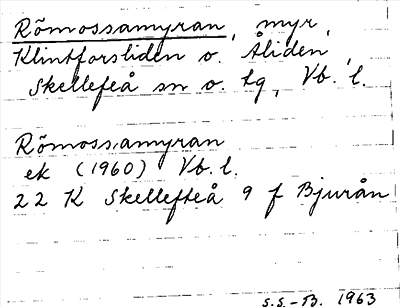 Rõmossamyran, myr,
Klintforsliden o. Åliden,
Skellefeå sn o. tg, Vb. l.
Rõmossamyran
ek (1960) Vb. l.
22 K Skellefteå 9 f Bjurån
S.S.-B. 1963